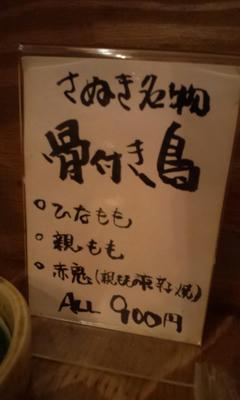 さぬき名物
骨付き鳥
○ ひなもも
○ 親もも
○ 赤鬼(親ももの辛子焼)
ALL 900円